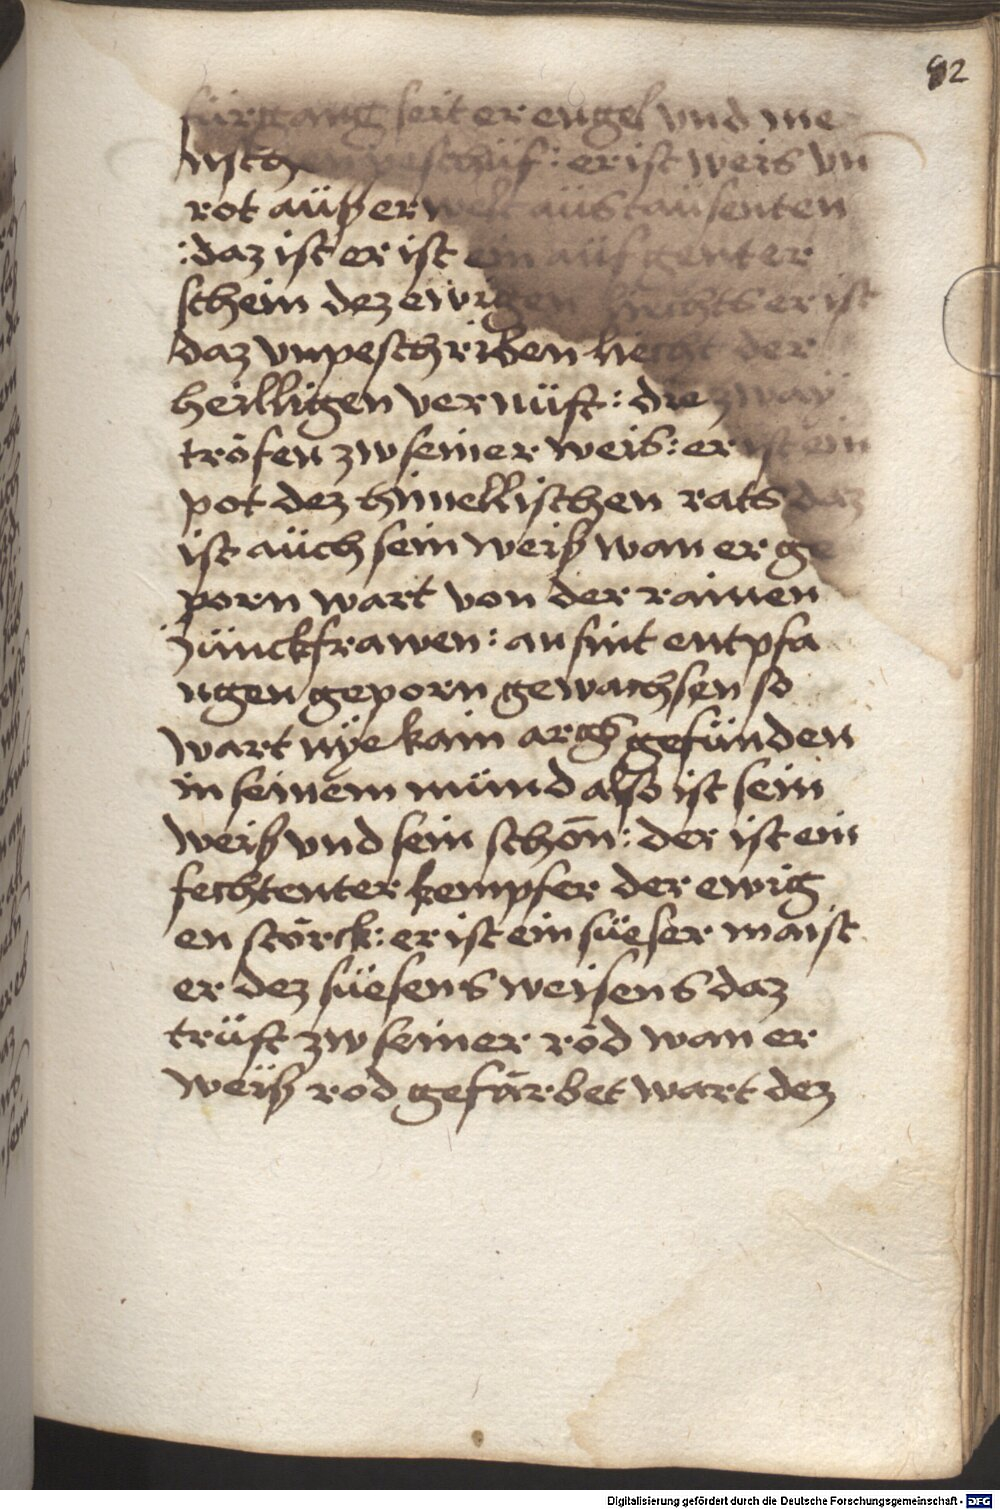 82
fürgang seit er engel vnd me
nschen peschüf : er ist weis vn
rot aüß erwelt aüs taüsenten
: daz ist er ist ein aüfgenter
schein dez ewigen liechts er ist
daz vnpeschriben liecht der
heilligen vernüft : die zway
tröfen zw seiner weis : er ist ein
pot dez himellischen rats daz
ist aüch sein weiß wan er ge
porn wart von der rainen
Jünckfrawen : an sint entpfa
ngen geporn gewachsen so
wart nÿe kain args gefünden
in seinem münd also ist sein
weiß vnd sein schön : der ist ein
fechtenter kempfer der ewig
en störck : er ist ein süeser maist
er dez süesens weisens daz
trüft zw seiner röd wan er
weiß rod gefärbet wart dez
Digitalisierung gefördert durch die Deutsche Forschungsgemeinschaft - DFG